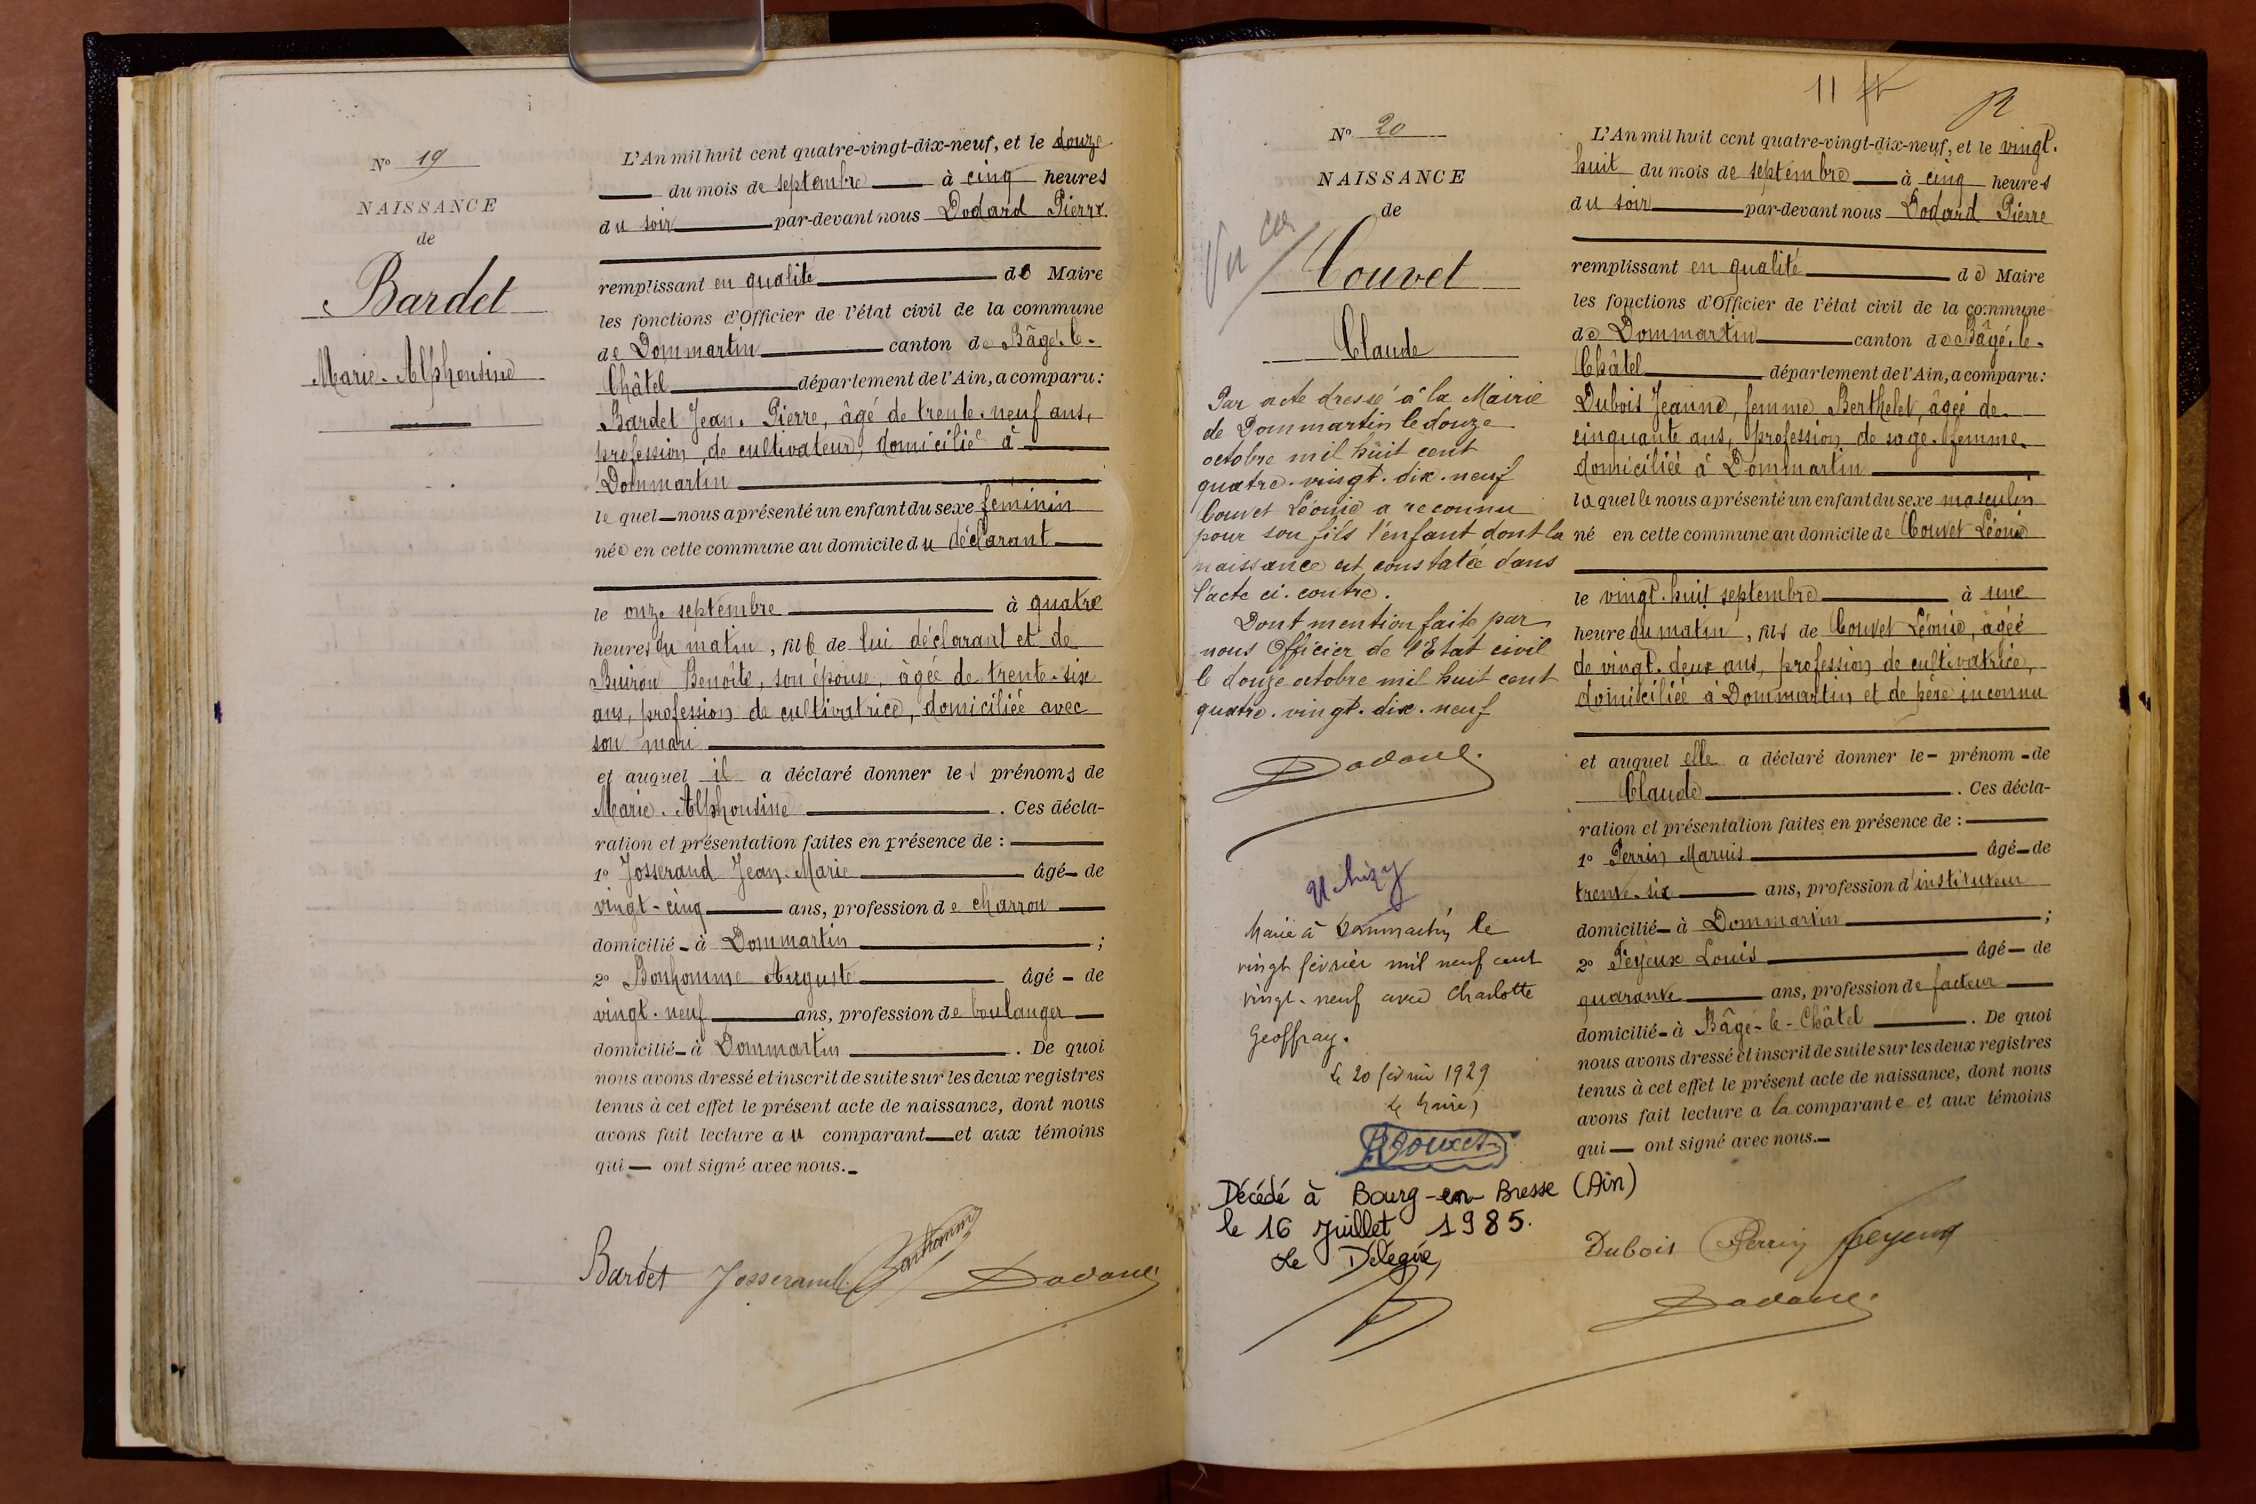 N° 19
NAISSANCE
de
Bardet
Marie-Alphonsine
L'An mil huit cent quatre-vingt-dix-neuf, et le douze
du mois de septembre à cinq heures
du soir par-devant nous Dodard Pierre
remplissant en qualité de Maire
les fonctions d'Officier de l'état civil de la commune
de Dommartin canton de Bâgé-le-
Châtel département de l'Ain, a comparu :
Bardet Jean-Pierre, âgé de trente-neuf ans,
profession de cultivateur, domicilié à
Dommartin
lequel nous a présenté un enfant du sexe féminin
née en cette commune au domicile du déclarant
le onze septembre à quatre
heures du matin, fille de lui déclarant et de
Buiron Benoîte, son épouse, âgée de trente-six
ans, profession de cultivatrice, domiciliée avec
son mari
et auquel il a déclaré donner les prénoms de
Marie-Alphonsine. Ces décla-
ration et présentation faites en présence de :
1° Josserand Jean-Marie âgé de
vingt-cinq ans, profession de charron
domicilié à Dommartin ;
2° Bonhomme Auguste âgé de
vingt-neuf ans, profession de boulanger
domicilié à Dommartin. De quoi
nous avons dressé et inscrit de suite sur les deux registres
tenus à cet effet le présent acte de naissance, dont nous
avons fait lecture au comparant et aux témoins
qui ont signé avec nous.
Bardet Josserand Bonhomme Dodard
11
N° 20
NAISSANCE
de
Vu
Couvet
Claude
Par acte dressé à la Mairie
de Dommartin le douze
octobre mil huit cent
quatre-vingt-dix-neuf
Couvet Léonie a reconnu
pour son fils l'enfant dont la
naissance est constatée dans
l'acte ci-contre.
Dont mention faite par
nous Officier de l'Etat civil
le douze octobre mil huit cent
quatre-vingt-dix-neuf
Dodard
Uchizy
Marié à Dommartin le
vingt février mil neuf cent
vingt-neuf avec Charlotte
Geoffray.
Le 20 février 1929
Le Maire,
Décédé à Bourg-en-Bresse (Ain)
le 16 Juillet 1985.
Le Délégué,
L'An mil huit cent quatre-vingt-dix-neuf, et le vingt-
huit du mois de septembre à cinq heures
du soir par-devant nous Dodard Pierre
remplissant en qualité de Maire
les fonctions d'Officier de l'état civil de la commune
de Dommartin canton de Bâgé-le-
Châtel département de l'Ain, a comparu :
Dubois Jeanne, femme Berthelet âgée de
cinquante ans, profession de sage-femme
domiciliée à Dommartin
laquelle nous a présenté un enfant du sexe masculin
né en cette commune au domicile de Couvet Léonie
le vingt-huit septembre à une
heure du matin, fils de Couvet Léonie, âgée
de vingt-deux ans, profession de cultivatrice,
domiciliée à Dommartin et de père inconnu
et auquel elle a déclaré donner le prénom de
Claude. Ces décla-
ration et présentation faites en présence de :
1° Perrin Marius âgé de
trente-six ans, profession d'instituteur
domicilié à Dommartin ;
2° Feyeux Louis âgé de
quarante ans, profession de facteur
domicilié à Bâgé-le-Châtel. De quoi
nous avons dressé et inscrit de suite sur les deux registres
tenus à cet effet le présent acte de naissance, dont nous
avons fait lecture a la comparante et aux témoins
qui ont signé avec nous.
Dubois Perrin Feyeux
Dodard